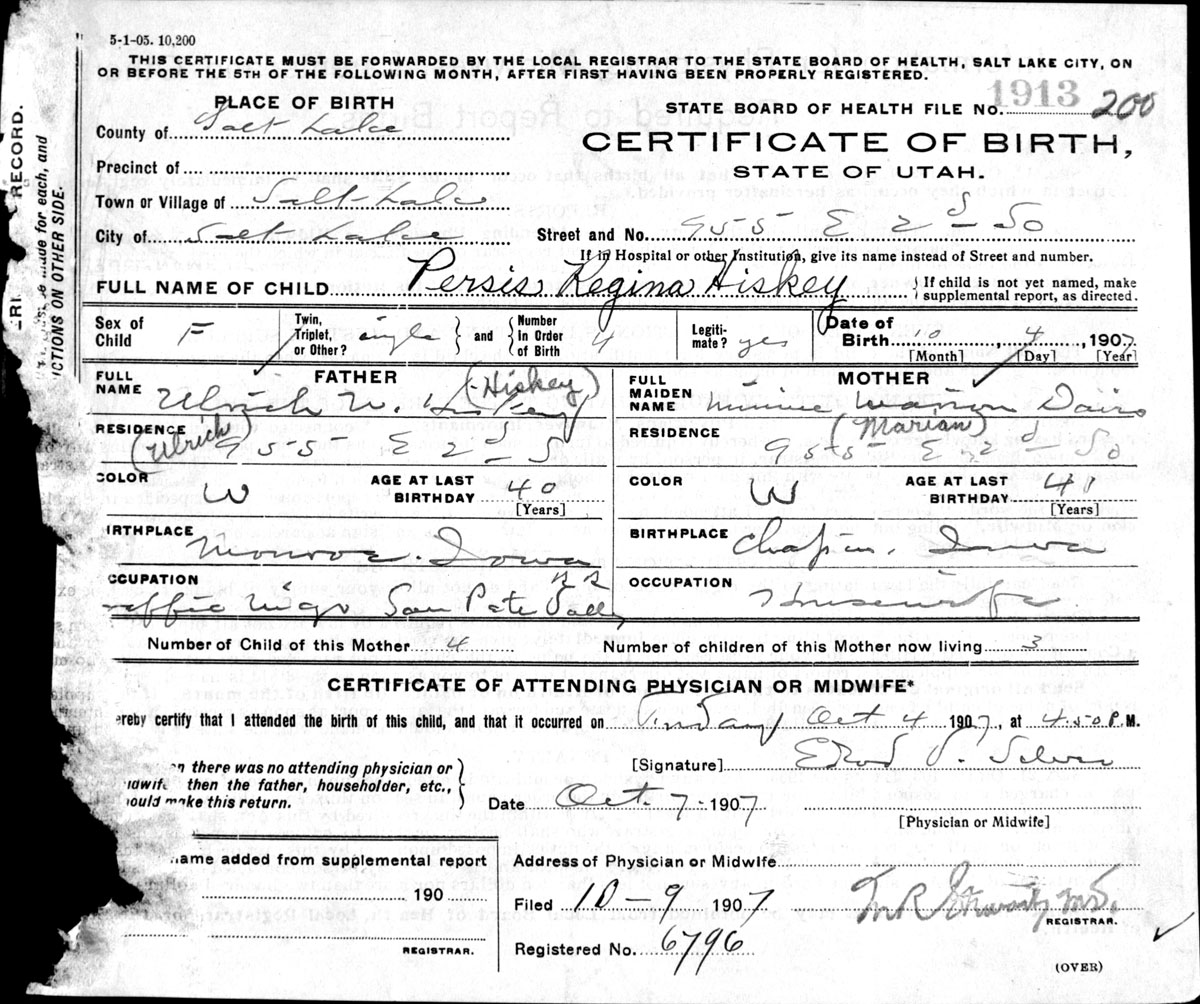 5-1-05. 10,200
THIS CERTIFICATE MUST BE FORWARDED BY THE LOCAL REGISTRAR TO THE STATE BOARD OF HEALTH, SALT LAKE CITY, ON
OR BEFORE THE 5TH OF THE FOLLOWING MONTH, AFTER FIRST HAVING BEEN PROPERLY REGISTERED.
PLACE OF BIRTH
STATE BOARD OF HEALTH FILE NO. 1913 200
County of Salt Lake
CERTIFICATE OF BIRTH,
Precinct of
STATE OF UTAH.
Town or Village of Salt Lake
City of Salt Lake Street and No. 955 E 2d So
If in Hospital or other Institution, give its name instead of Street and number.
FULL NAME OF CHILD Persis Regina Hiskey } If child is not yet named, make
supplemental report, as directed.
Sex of Child F Twin, Triplet, or Other? single and Number In Order of Birth 4 Legiti-mate? yes Date of Birth 10, 4, 1907
[Month] [Day] [Year]
FULL NAME FATHER Ulrich W. Hiskey (Hiskey)
FULL MAIDEN NAME MOTHER Minnie Marion Davis
RESIDENCE (Ulrich) 955 E 2d S
RESIDENCE (Marian) 955 E 2d So
COLOR W AGE AT LAST BIRTHDAY 40 [Years]
COLOR W AGE AT LAST BIRTHDAY [Years]
BIRTHPLACE Monroe. Iowa
BIRTHPLACE Chapin, Iowa
CCUPATION raffic Mngr San Pete Valley RR
OCCUPATION Housewife
Number of Child of this Mother 4 Number of children of this Mother now living 3
CERTIFICATE OF ATTENDING PHYSICIAN OR MIDWIFE*
ereby certify that I attended the birth of this child, and that it occurred on Oct 4 1907, at 4.50 P.M.
[Signature]
n there was no attending physician or
midwife then the father, householder, etc.,
hould make this return.
Date Oct. 7 - 1907
[Physician or Midwife]
name added from supplemental report
Address of Physician or Midwife
190
Filed 10 - 9 1907
REGISTRAR.
REGISTRAR.
Registered No. 6796
(OVER)
RECORD.
made for each, and
CTIONS ON OTHER SIDE.